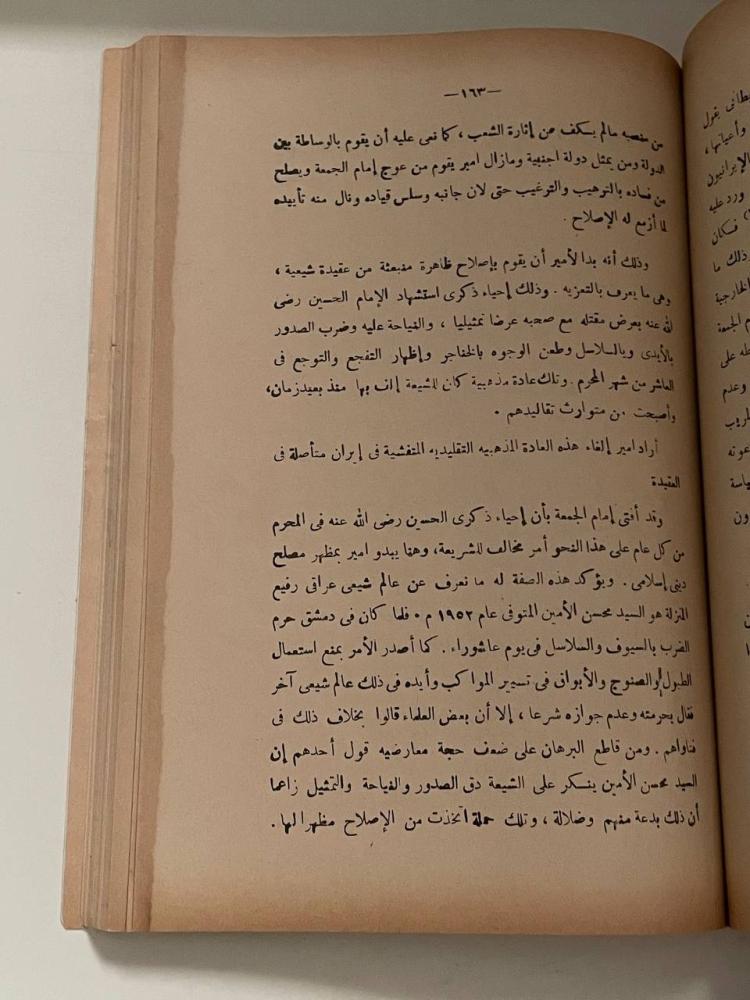 —١٦٣—
من منصبه مالم يسكف عن إثارة الشعب ، كما نعى عليه أن يقوم بالوساطة بين
الدولة ومن يمثل دولة اجنبية ومازال امير يقوم من عوج إمام الجمعة ويصلح
من فساده بالترهيب والترغيب حتى لان جانبه وسلس قياده ونال منه تأييده
لما أزمع له الإصلاح .
وذلك أنه بدا لأمير أن يقوم بإصلاح ظاهرة منبعثة من عقيدة شيعية ،
وهى ما يعرف بالتعزيه . وذلك إحياء ذكرى استشهاد الإمام الحسين رضى
الله عنه بعرض مقتله مع صحبه عرضا تمثيليا ، والنياحة عليه وضرب الصدور
بالأيدى وبالسلاسل وطعن الوجوه بالخناجر وإظهار التفجع والتوجع فى
العاشر من شهر المحرم . وتلك عادة مذهبية كان للشيعة إلف بها منذ بعيد زمان،
وأصبحت من متوارث تقاليدهم .
أراد امير إلغاء هذه العادة المذهبيه التقليديه المتفشية فى إيران متأصلة فى
العقيدة
وقد أفتى إمام الجمعة بأن إحياء ذكرى الحسين رضى الله عنه فى المحرم
من كل عام على هذا النحو أمر مخالف للشريعة، وهنا يبدو امير بمظهر مصلح
دينى إسلامى . ويؤكد هذه الصفة له ما نعرف عن عالم شيعى عراقى رفيع
المنزلة هو السيد محسن الأمين المتوفى عام ١٩٥٢ م . فلما كان فى دمشق حرم
الضرب بالسيوف والسلاسل فى يوم عاشوراء . كما أصدر الأمر بمنع استعمال
الطبول والصنوج والأبواق فى تسيير المواكب وأيده فى ذلك عالم شيعى آخر
فقال بحرمته وعدم جوازه شرعا ، إلا أن بعض العلماء قالوا بخلاف ذلك فى
فتاواهم . ومن قاطع البرهان على ضعف حجة معارضيه قول أحدهم إن
السيد محسن الأمين ينسكر على الشيعة دق الصدور والنياحة والتمثيل زاعما
أن ذلك بدعة منهم وضلالة ، وتلك حملة اتخذت من الإصلاح مظهرا لها .